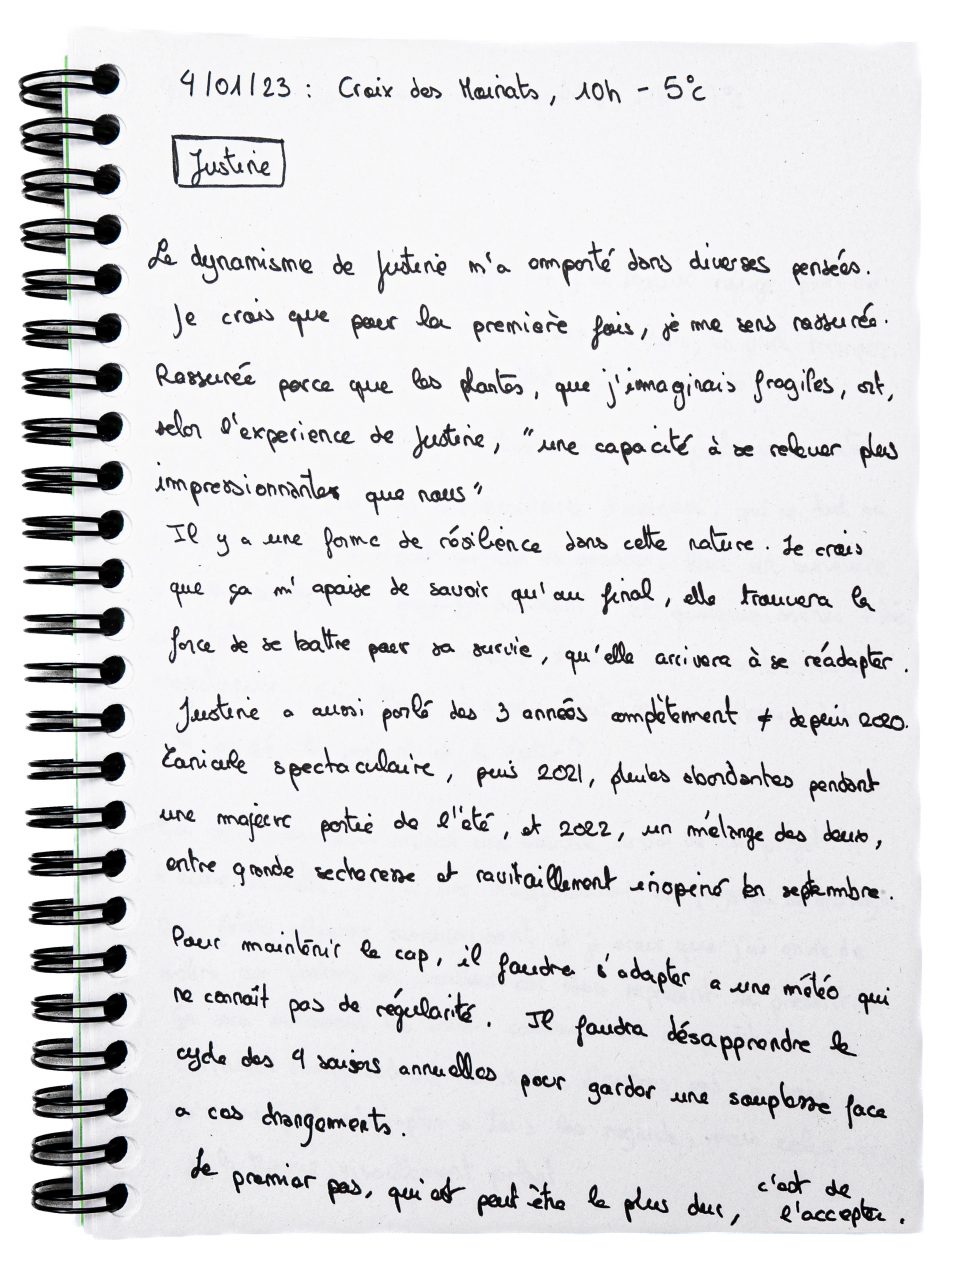 4/01/23 : Croix des Moinats, 10h - 5°c
Justine
Le dynamisme de Justine m'a emporté dans diverses pensées.
Je crois que pour la première fois, je me sens rassurée.
Rassurée parce que les plantes, que j'imaginais fragiles, ont,
selon l'experience de Justine, "une capacité à se relever plus
impressionnantes que nous"
Il y a une forme de résilience dans cette nature. Je crois
que ça m'apaise de savoir qu'au final, elle trouvera la
force de se battre pour sa survie, qu'elle arrivera à se réadapter.
Justine a aussi parlé des 3 années complètement ≠ depuis 2020.
Canicule spectaculaire, puis 2021, pluies abondantes pendant
une majeure partie de l'été, et 2022, un mélange des deux,
entre grande secheresse et ravitaillement inopiné en septembre.
Pour maintenir le cap, il faudra s'adapter a une météo qui
ne connaît pas de régularité. Il faudra désapprendre le
cycle des 4 saisons annuelles pour garder une souplesse face
a ces changements.
Le premier pas, qui est peut être le plus dur, c'est de
l'accepter.